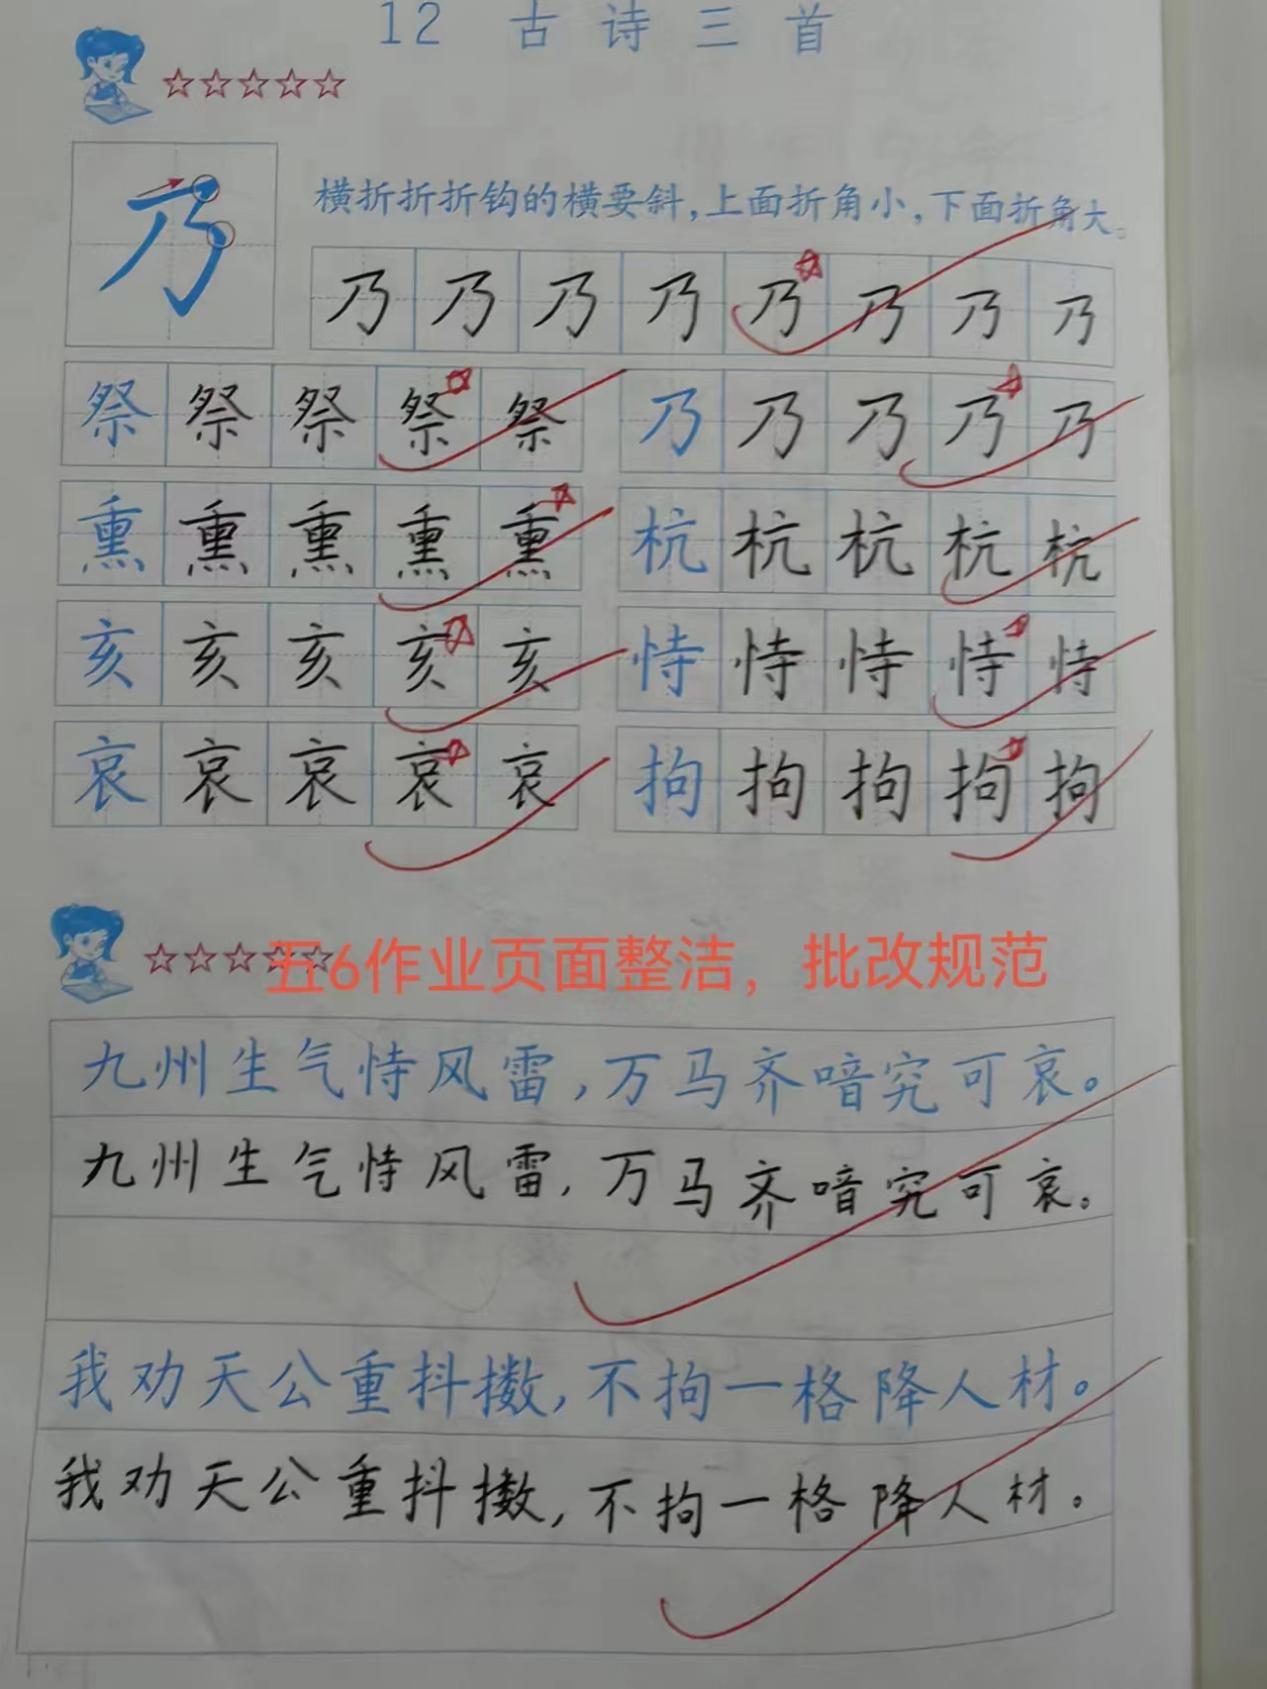 12 古诗三首
乃 横折折折钩的横要斜，上面折角小，下面折角大。
乃 乃 乃 乃 乃 乃 乃 乃
祭 祭 祭 祭 祭 乃 乃 乃 乃 乃
熏 熏 熏 熏 熏 杭 杭 杭 杭 杭
亥 亥 亥 亥 亥 恃 恃 恃 恃 恃
哀 哀 哀 哀 哀 拘 拘 拘 拘 拘
五6作业页面整洁，批改规范
九州生气恃风雷，万马齐喑究可哀。
九州生气恃风雷，万马齐喑究可哀。
我劝天公重抖擞，不拘一格降人材。
我劝天公重抖擞，不拘一格降人材。